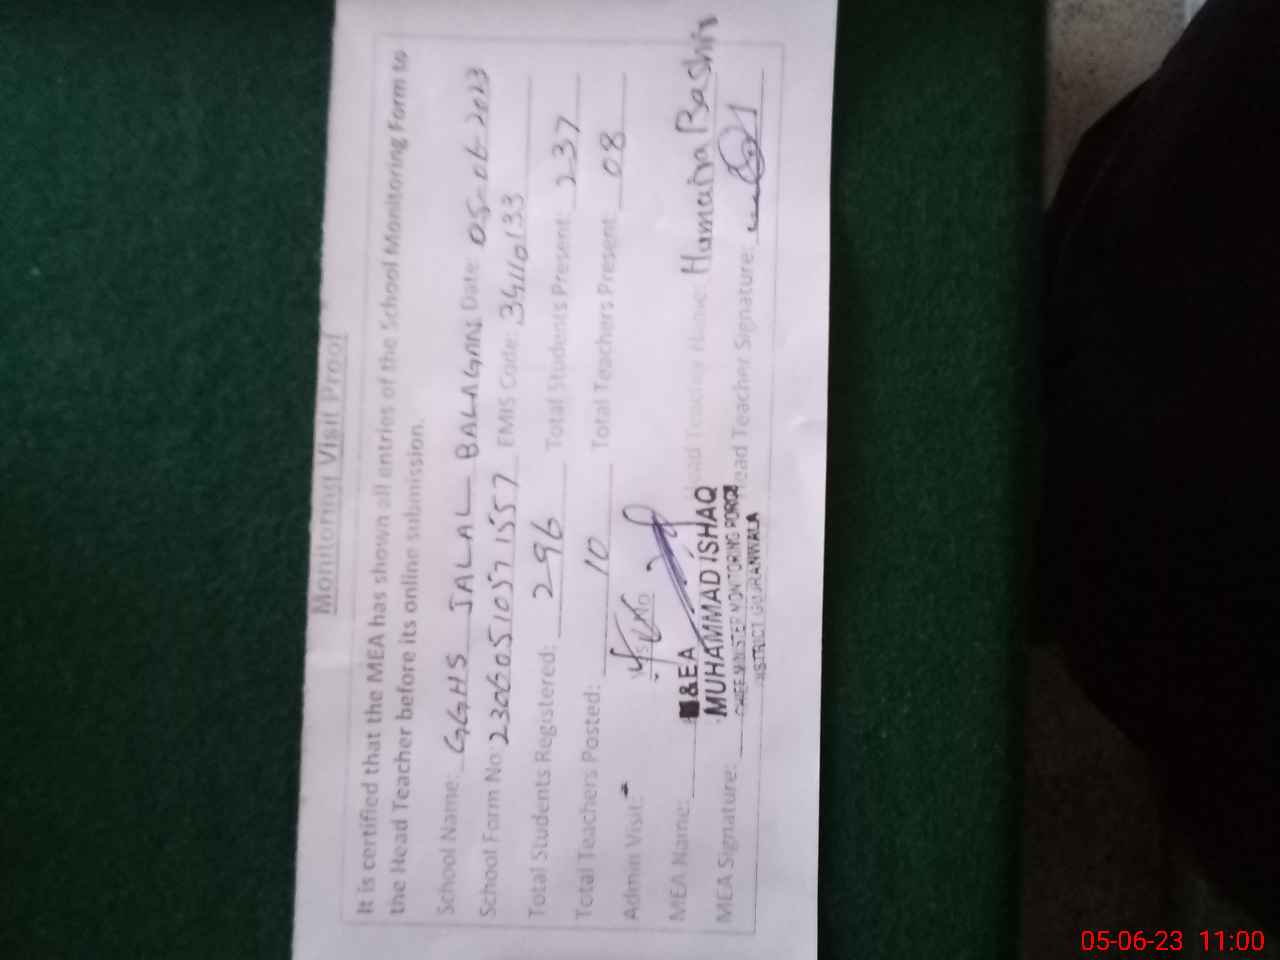 Monitoring Visit Proof
It is certified that the MEA has shown all entries of the School Monitoring Form to
the Head Teacher before its online submission.
School Name: GGHS JALAL BALAGAN Date: 05-06-2023
School Form No: 23060510571557 EMIS Code: 34110133
Total Students Registered: 296 Total Students Present: 237
Total Teachers Posted: 10 Total Teachers Present: 08
Admin Visit: Yes/No
MEA Name: M&EA Head Teacher Name: Humaira Bashir
MUHAMMAD ISHAQ
MEA Signature: CHIEF MINISTER MONITORING FORCE Head Teacher Signature:
DISTRICT GUJRANWALA
05-06-23 11:00